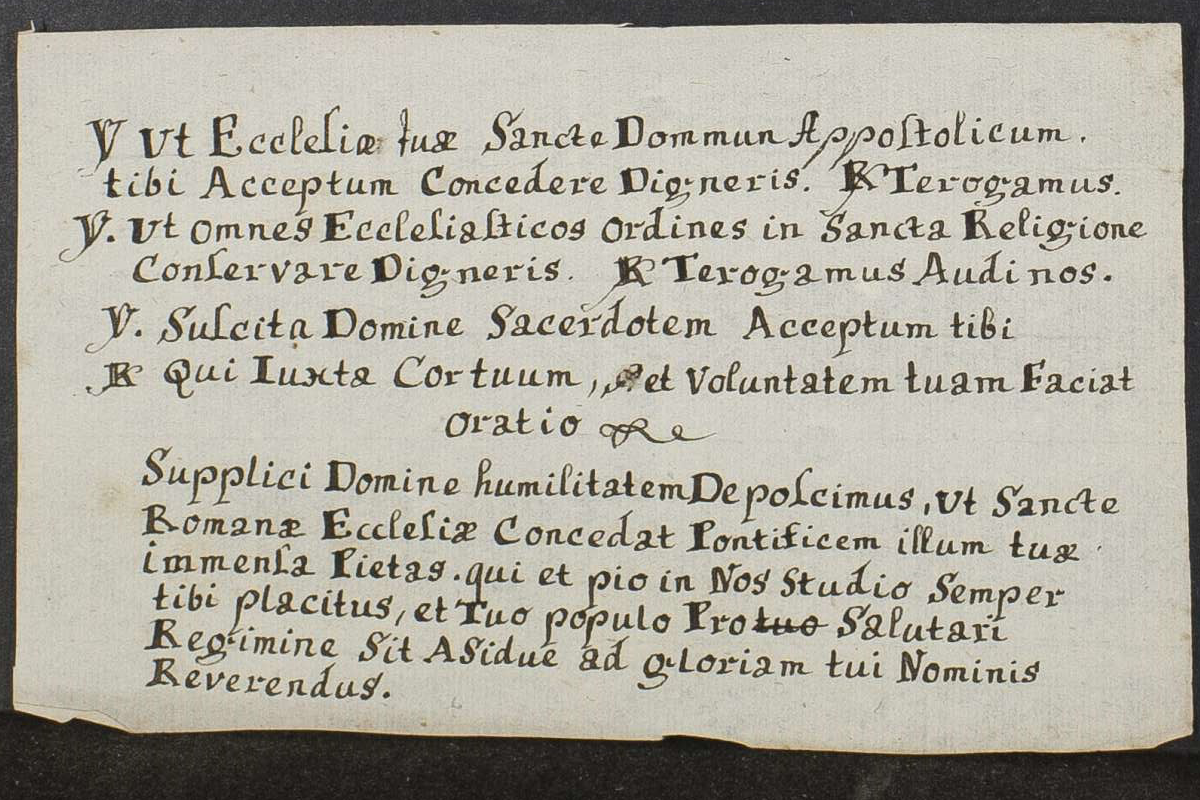 ℣ Ut Eccleſiæ tuæ Sancte Dommun Appoſtolicum.
tibi Acceptum Concedere Digneris. ℟ Terogamus.
℣. Ut omnes Eccleſiaſticos ordines in Sancta Religione
Conſervare Digneris. ℟ Terogamus Audi nos.
℣. Suſcita Domine Sacerdotem Acceptum tibi
℟ Qui Iuxta Cortuum, et Voluntatem tuam Faciat
Oratio
Supplici Domine humilitatem Depoſcimus, Ut Sancte
Romanæ Eccleſiæ Concedat Pontificem illum tuæ
immenſa Pietas. qui et pio in Nos Studio Semper
tibi placitus, et Tuo populo Pro tuo Salutari
Regimine Sit ASidue ad gloriam tui Nominis
Reverendus.